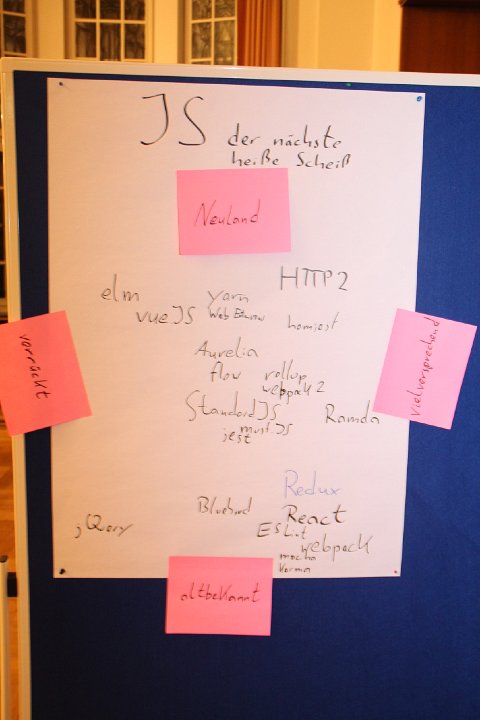 JS der nächste
heiße Scheiß
Neuland
HTTP2
elm
yarn
vueJS
verrückt
vielversprechend
Aurelia
flow
rollup
webpack 2
StandardJS
Ramda
jest
Redux
Bluebird
React
jQuery
ESLint
webpack
mocha
Karma
altbekannt